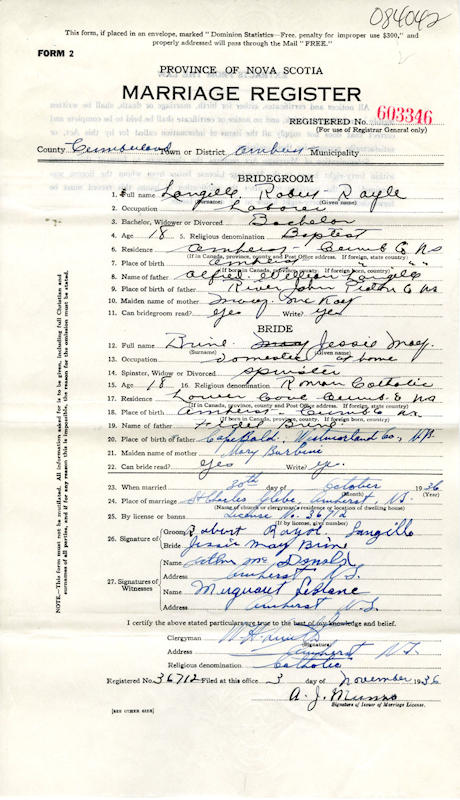 084042
This form, if placed in an envelope, marked "Dominion Statistics—Free, penalty for improper use $300," and
properly addressed will pass through the Mail "FREE."
FORM 2
PROVINCE OF NOVA SCOTIA
MARRIAGE REGISTER
REGISTERED No. 603346
(For use of Registrar General only)
County Cumberland Town or District Amherst Municipality
BRIDEGROOM
1. Full name Langille, Robert Rayle
(Surname) (Given name)
2. Occupation Laborer
3. Bachelor, Widower or Divorced Bachelor
4. Age 18 5. Religious denomination Baptist
6. Residence Amherst Cumb Co NS
(If in Canada, province, county and Post Office address. If foreign, state country)
7. Place of birth Amherst " "
(If born in Canada, province, county. If foreign born, country)
8. Name of father Alfred William Langille
9. Place of birth of father River John Pictou Co NS
10. Maiden name of mother Mary McKay
11. Can bridegroom read? Yes Write? Yes
BRIDE
12. Full name Brine Jessie May
(Surname) (Given name)
13. Occupation Domestic at home
14. Spinster, Widow or Divorced Spinster
15. Age 18 16. Religious denomination Roman Catholic
17. Residence Lower Cove Cumb Co NS
(If in Canada, province, county and Post Office address. If foreign, state country)
18. Place of birth Amherst Cumb Co NS
(If born in Canada, province, county. If foreign born, country)
19. Name of father Fidel Brine
20. Place of birth of father Cape Bald, Westmorland Co., N.B.
21. Maiden name of mother Mary Burbine
22. Can bride read? Yes Write? Yes
23. When married 30th day of October 1936
(Month) (Year)
24. Place of marriage St Charles Glebe, Amherst, N.S.
(Name of church or clergyman's residence or location of dwelling house)
25. By license or banns License No. 36712
(If by license, give number)
26. Signature of Groom Robert Rayol Langille
Bride Jessie May Brine
27. Signatures of Witnesses
Name Arthur McDonald
Address Amherst N.S.
Name Margaret Leblanc
Address Amherst N.S.
I certify the above stated particulars are true to the best of my knowledge and belief.
Clergyman
(Signature)
Address Amherst N.S.
Religious denomination Catholic
Registered No. 36712 Filed at this office 3 day of November 1936
A. J. Munro
Signature of Issuer of Marriage License.
[SEE OTHER SIDE]
NOTE.—This form must not be mutilated. All information asked for is to be given, including full Christian and
surnames of all parties, and if for any reason this is impossible, the reason for the omission must be stated.